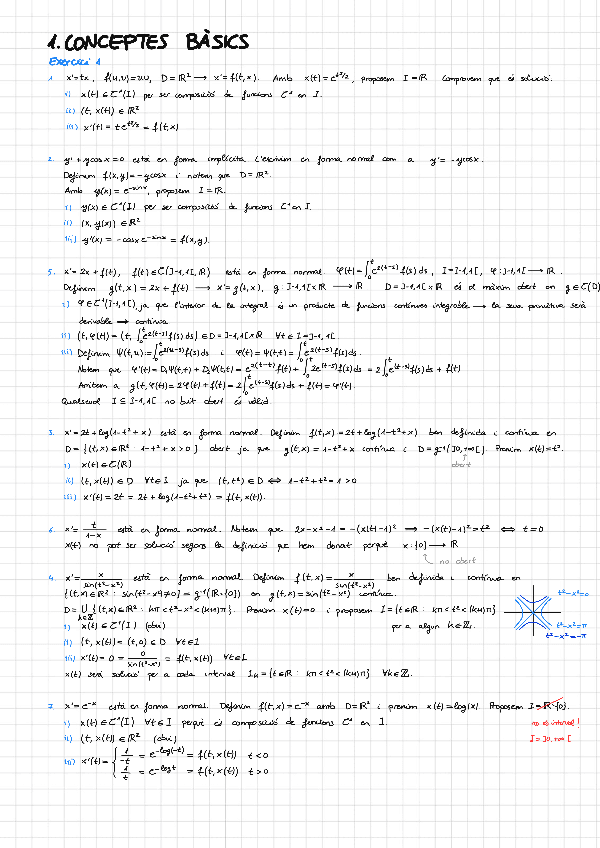 1. CONCEPTES BÀSICS
Exercici 1
1. x'=tx, f(u,v)=uv, D=ℝ² ⟶ x'=f(t,x). Amb x(t)=e^{t²/2}, proposem I=ℝ. Comprovem que és solució.
i) x(t)∈C¹(I) per ser composició de funcions C¹ en I.
ii) (t, x(t))∈ℝ²
iii) x'(t)= t e^{t²/2} = f(t,x)
2. y'+ycosx=0 està en forma implícita. L'escrivim en forma normal com a y'=-ycosx.
Definim f(x,y)=-ycosx i notem que D=ℝ².
Amb y(x)=e^{-sinx}, proposem I=ℝ.
i) y(x)∈C¹(I) per ser composició de funcions C¹ en I.
ii) (x, y(x))∈ℝ²
iii) y'(x)=-cosx e^{-sinx} = f(x,y).
5. x'=2x+f(t), f(t)∈C(]-1,1[,ℝ) està en forma normal. φ(t)=∫₀ᵗ e^{2(t-s)} f(s)ds, I=]-1,1[, φ:]-1,1[⟶ℝ.
Definim g(t,x)=2x+f(t) ⟶ x'=g(t,x), g:]-1,1[×ℝ⟶ℝ D=]-1,1[×ℝ és el màxim obert on g∈C(D)
i) φ∈C¹(]-1,1[), ja que l'interior de la integral és un producte de funcions contínues integrable ⟶ la seva primitiva serà
derivable ⟶ contínua
ii) (t, φ(t))=(t, ∫₀ᵗ e^{2(t-s)} f(s)ds)∈D=]-1,1[×ℝ ∀t∈I=]-1,1[
iii) Definim Ψ(t,u):=∫₀ᵘ e^{2(t-s)} f(s)ds i φ(t)=Ψ(t,t)=∫₀ᵗ e^{2(t-s)} f(s)ds.
Notem que φ'(t)=D₁Ψ(t,t)+D₂Ψ(t,t)=e^{2(t-t)} f(t)+∫₀ᵗ 2e^{2(t-s)} f(s)ds = 2∫₀ᵗ e^{2(t-s)} f(s)ds + f(t)
Arribem a g(t,φ(t))=2φ(t)+f(t)=2∫₀ᵗ e^{2(t-s)} f(s)ds+f(t)=φ'(t).
Qualsevol I⊆]-1,1[ no buit obert és vàlid.
3. x'=2t+log(1-t²+x) està en forma normal. Definim f(t,x)=2t+log(1-t²+x) ben definida i contínua en
D={(t,x)∈ℝ² : 1-t²+x>0} obert ja que g(t,x)=1-t²+x contínua i D=g⁻¹(]0,+∞[). Prenim x(t)=t².
obert
i) x(t)∈C(ℝ)
ii) (t, x(t))∈D ∀t∈I ja que (t,t²)∈D ⟺ 1-t²+t²=1>0
iii) x'(t)=2t=2t+log(1-t²+t²)=f(t,x(t)).
6. x'=t/(1-x) està en forma normal. Notem que 2x-x²-1=-(x(t)-1)² ⟹ -(x(t)-1)²=t² ⟺ t=0
x(t) no pot ser solució segons la definició que hem donat perquè x:{0}⟶ℝ
no obert
4. x'=x/sin(t²-x²) està en forma normal. Definim f(t,x)=x/sin(t²-x²) ben definida i contínua en
{(t,x)∈ℝ² : sin(t²-x²)≠0}=g⁻¹(ℝ\{0}) on g(t,x)=sin(t²-x²) contínua.
D=⋃_{k∈ℤ}{(t,x)∈ℝ² : kπ<t²-x²<(k+1)π}. Prenim x(t)=0 i proposem I={t∈ℝ : kπ<t²<(k+1)π}
per a algun k∈ℤ.
t²-x²=0
t²-x²=π
t²-x²=-π
i) x(t)∈C¹(I) (obvi)
ii) (t, x(t))=(t,0)∈D ∀t∈I
iii) x'(t)=0=0/sin(t²-x²)=f(t,x(t)) ∀t∈I.
x(t) serà solució per a cada interval I_k={t∈ℝ : kπ<t²<(k+1)π} ∀k∈ℤ.
7. x'=e^{-x} està en forma normal. Definim f(t,x)=e^{-x} amb D=ℝ² i prenim x(t)=log|x|. Proposem I=ℝ\{0}.
no és interval!
I=]0,+∞[
i) x(t)∈C¹(I) ∀t∈I perquè és composició de funcions C¹ en I.
ii) (t, x(t))∈ℝ² (obvi)
iii) x'(t)= { 1/-t = e^{-log(-t)} = f(t,x(t)) t<0
1/t = e^{-logt} = f(t,x(t)) t>0